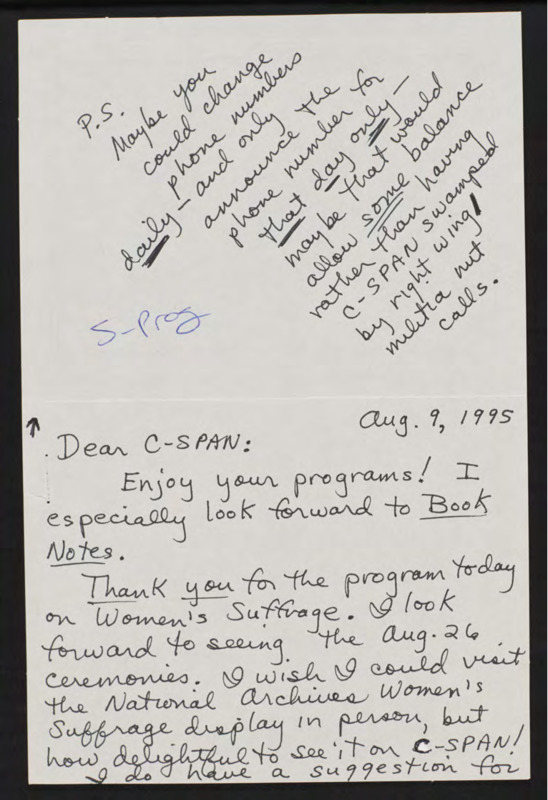 P.S.
Maybe you
could change
phone numbers
daily — and only
announce the
phone number for
that day only —
maybe that would
allow some balance
rather than having
C-SPAN swamped
by right wing/
militia nut
calls.
S-Prog
Aug. 9, 1995
Dear C-SPAN:
Enjoy your programs! I
especially look forward to Book
Notes.
Thank you for the program today
on Women's Suffrage. I look
forward to seeing the Aug. 26
ceremonies. I wish I could visit
the National Archives Women's
Suffrage display in person, but
how delightful to see it on C-SPAN!
I do have a suggestion for